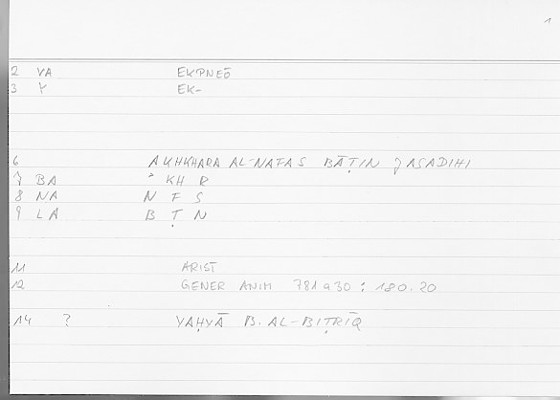 1
2 VA EKPNEŌ
3 Y EK-
6 AKHKHARA AL-NAFAS BĀṬIN JASADIHI
7 BA ʾ KH R
8 NA N F S
9 LA B Ṭ N
11 ARIST
12 GENER ANIM 781a30 : 180.20
14 ? YAḤYĀ B. AL-BIṬRĪQ